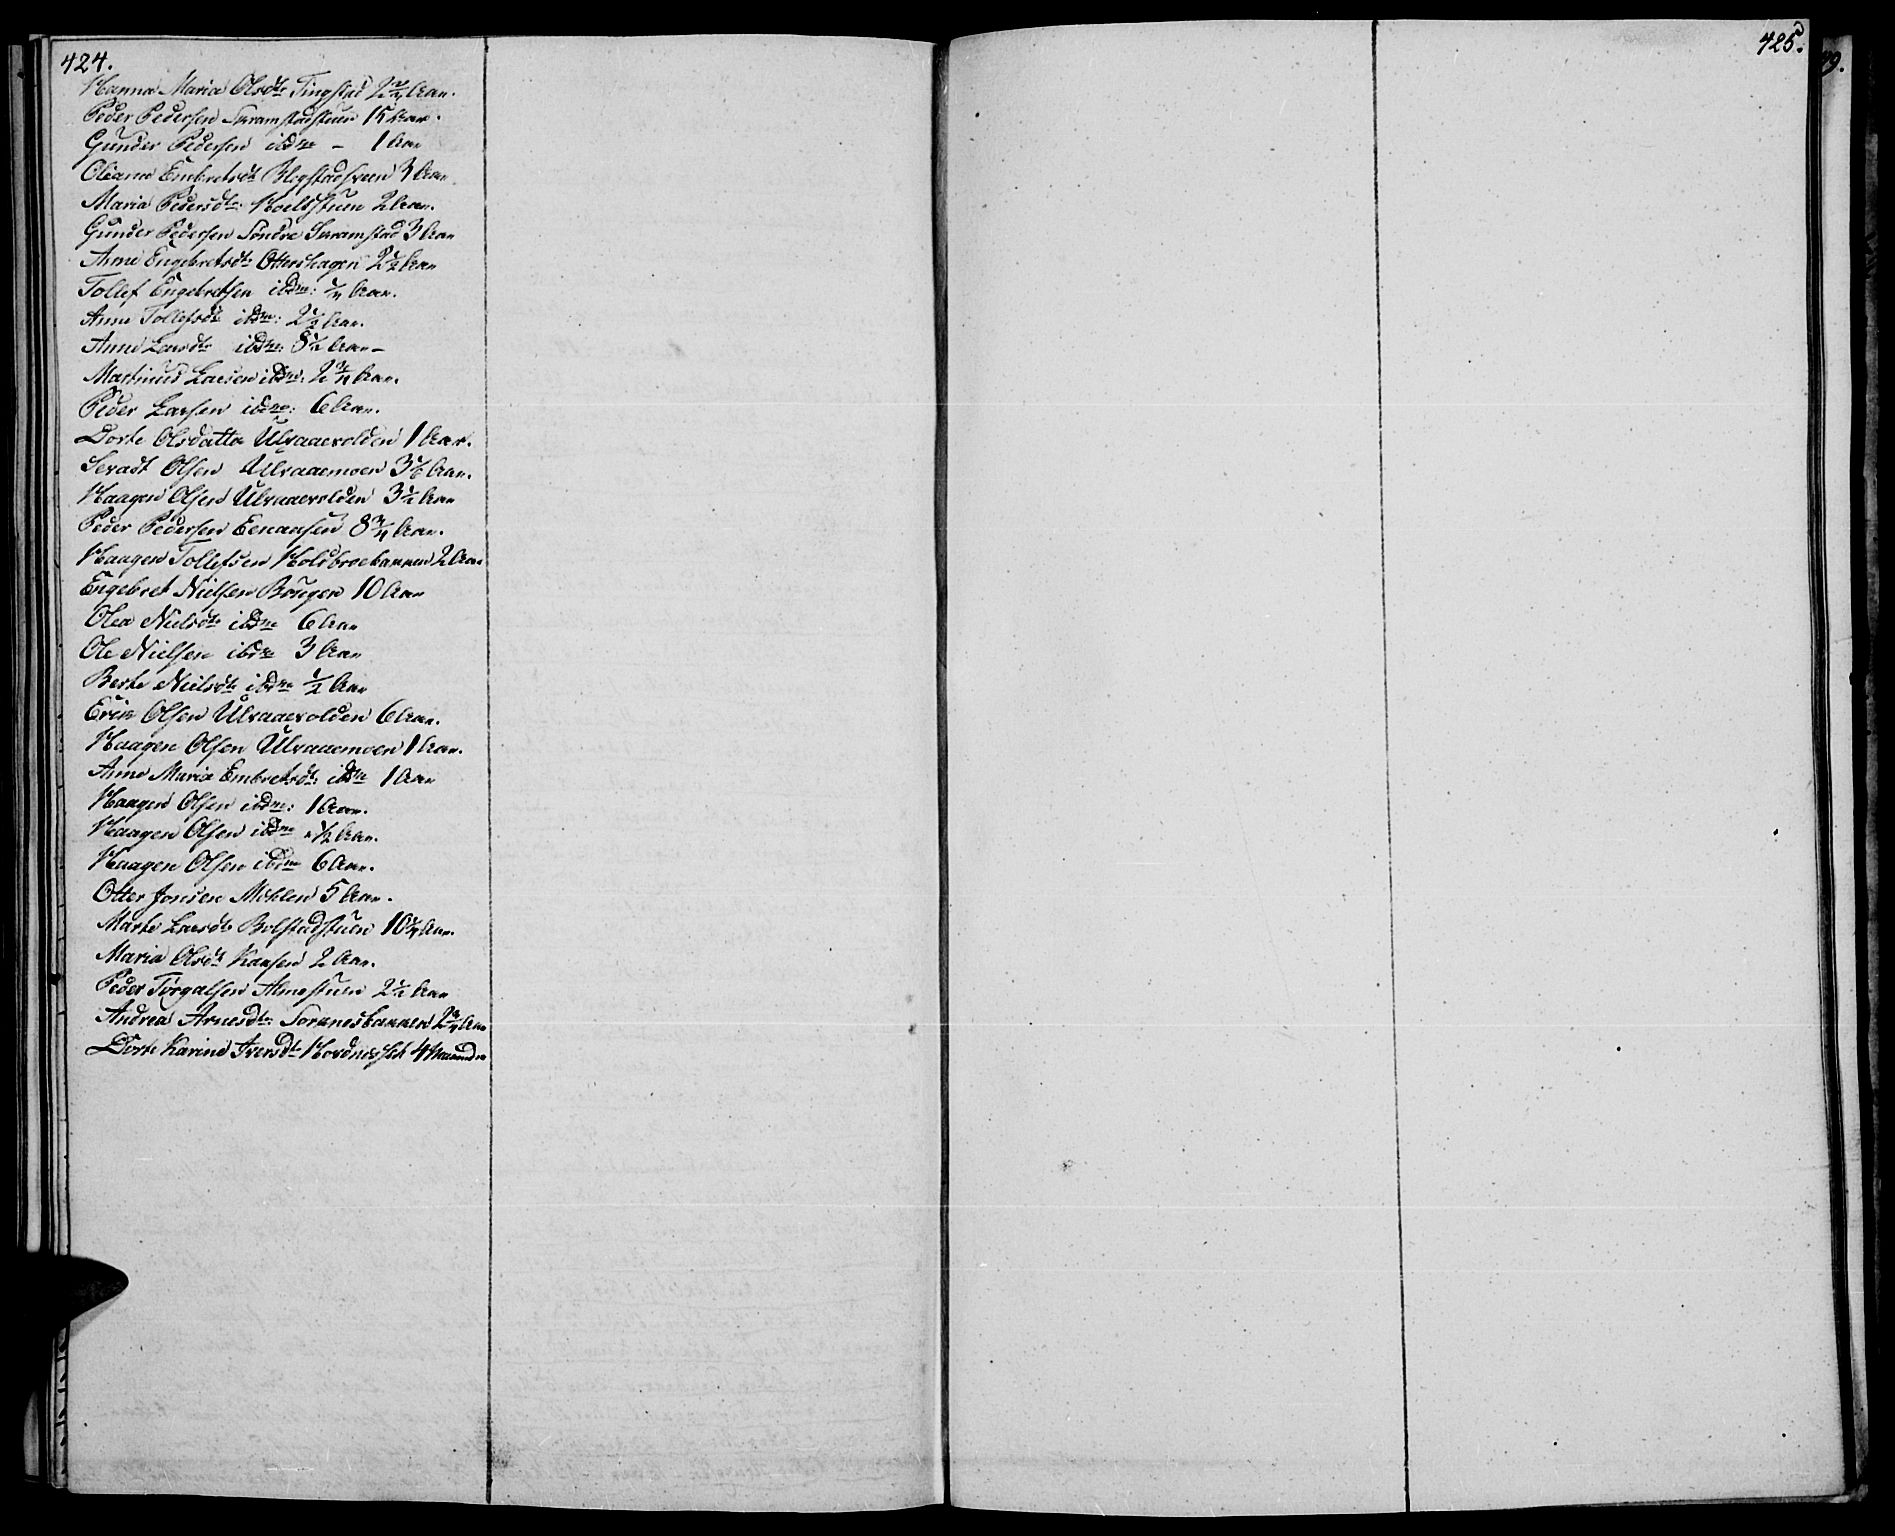 424.
Hanna Maria Olsdtr Tingstad 2 2/4 Aar.
Peder Pedersen Skramstadstuen 15 Aar.
Gunder Pedersen ibdm - 1 Aar
Oleana Embretsdt 3 Aar
Maria Pedersdtr: Holtstuen 2 Aar.
Gunder Pedersen Søndre Skramstad 3 Aar
Anne Engebretsdtr Ottershagen 2 1/2 Aar
Tollef Engebretsen ibdm: 1/4 Aar.
Anne Tollefsdt ibdm: 2 1/2 Aar.
Anne Larsdtr ibdm: 8 1/2 Aar -
Martinus Larsen ibdm: 2 3/4 Aar.
Peder Larsen ibdm: 6 Aar.
Dorte Olsdatter Ulvaaevolden 1 Aar.
Sevadt Olsen Ulvaaemoen 3 1/2 Aar.
Haagen Olsen Ulvaaevolden 3 1/2 Aar
Peder Pedersen Eenaasen 8 3/4 Aar.
Haagen Tollefsen Holdbroebakken 2 Aar
Engebret Nielsen Bougen 10 Aar
Olea Nielsdtr ibdm 6 Aar
Ole Nielsen ibdm 3 Aar
Berte Nielsdtr ibdm 1/2 Aar
Erik Olsen Ulvaaevolden 6 Aar.
Haagen Olsen Ulvaaemoen 1 Aar.
Anne Maria Embretsdt: ibdm 1 Aar
Haagen Olsen ibdm: 1 Aar.
Haagen Olsen ibdm 1/2 Aar.
Haagen Olsen ibdm 6 Aar.
Otter Jonsen Møhlen 5 Aar.
Marte Larsdtr Bolstadstuen 10 1/4 Aar.
Maria Olsdt Kaasen 2 Aar.
Peder Torgalsen Almestuen 2 1/2 Aar
Andrea Arnesdtr: Sorknesbakken 2 3/4 Aar
Dorte Karine Iversdtr 4 Maaneder
425.